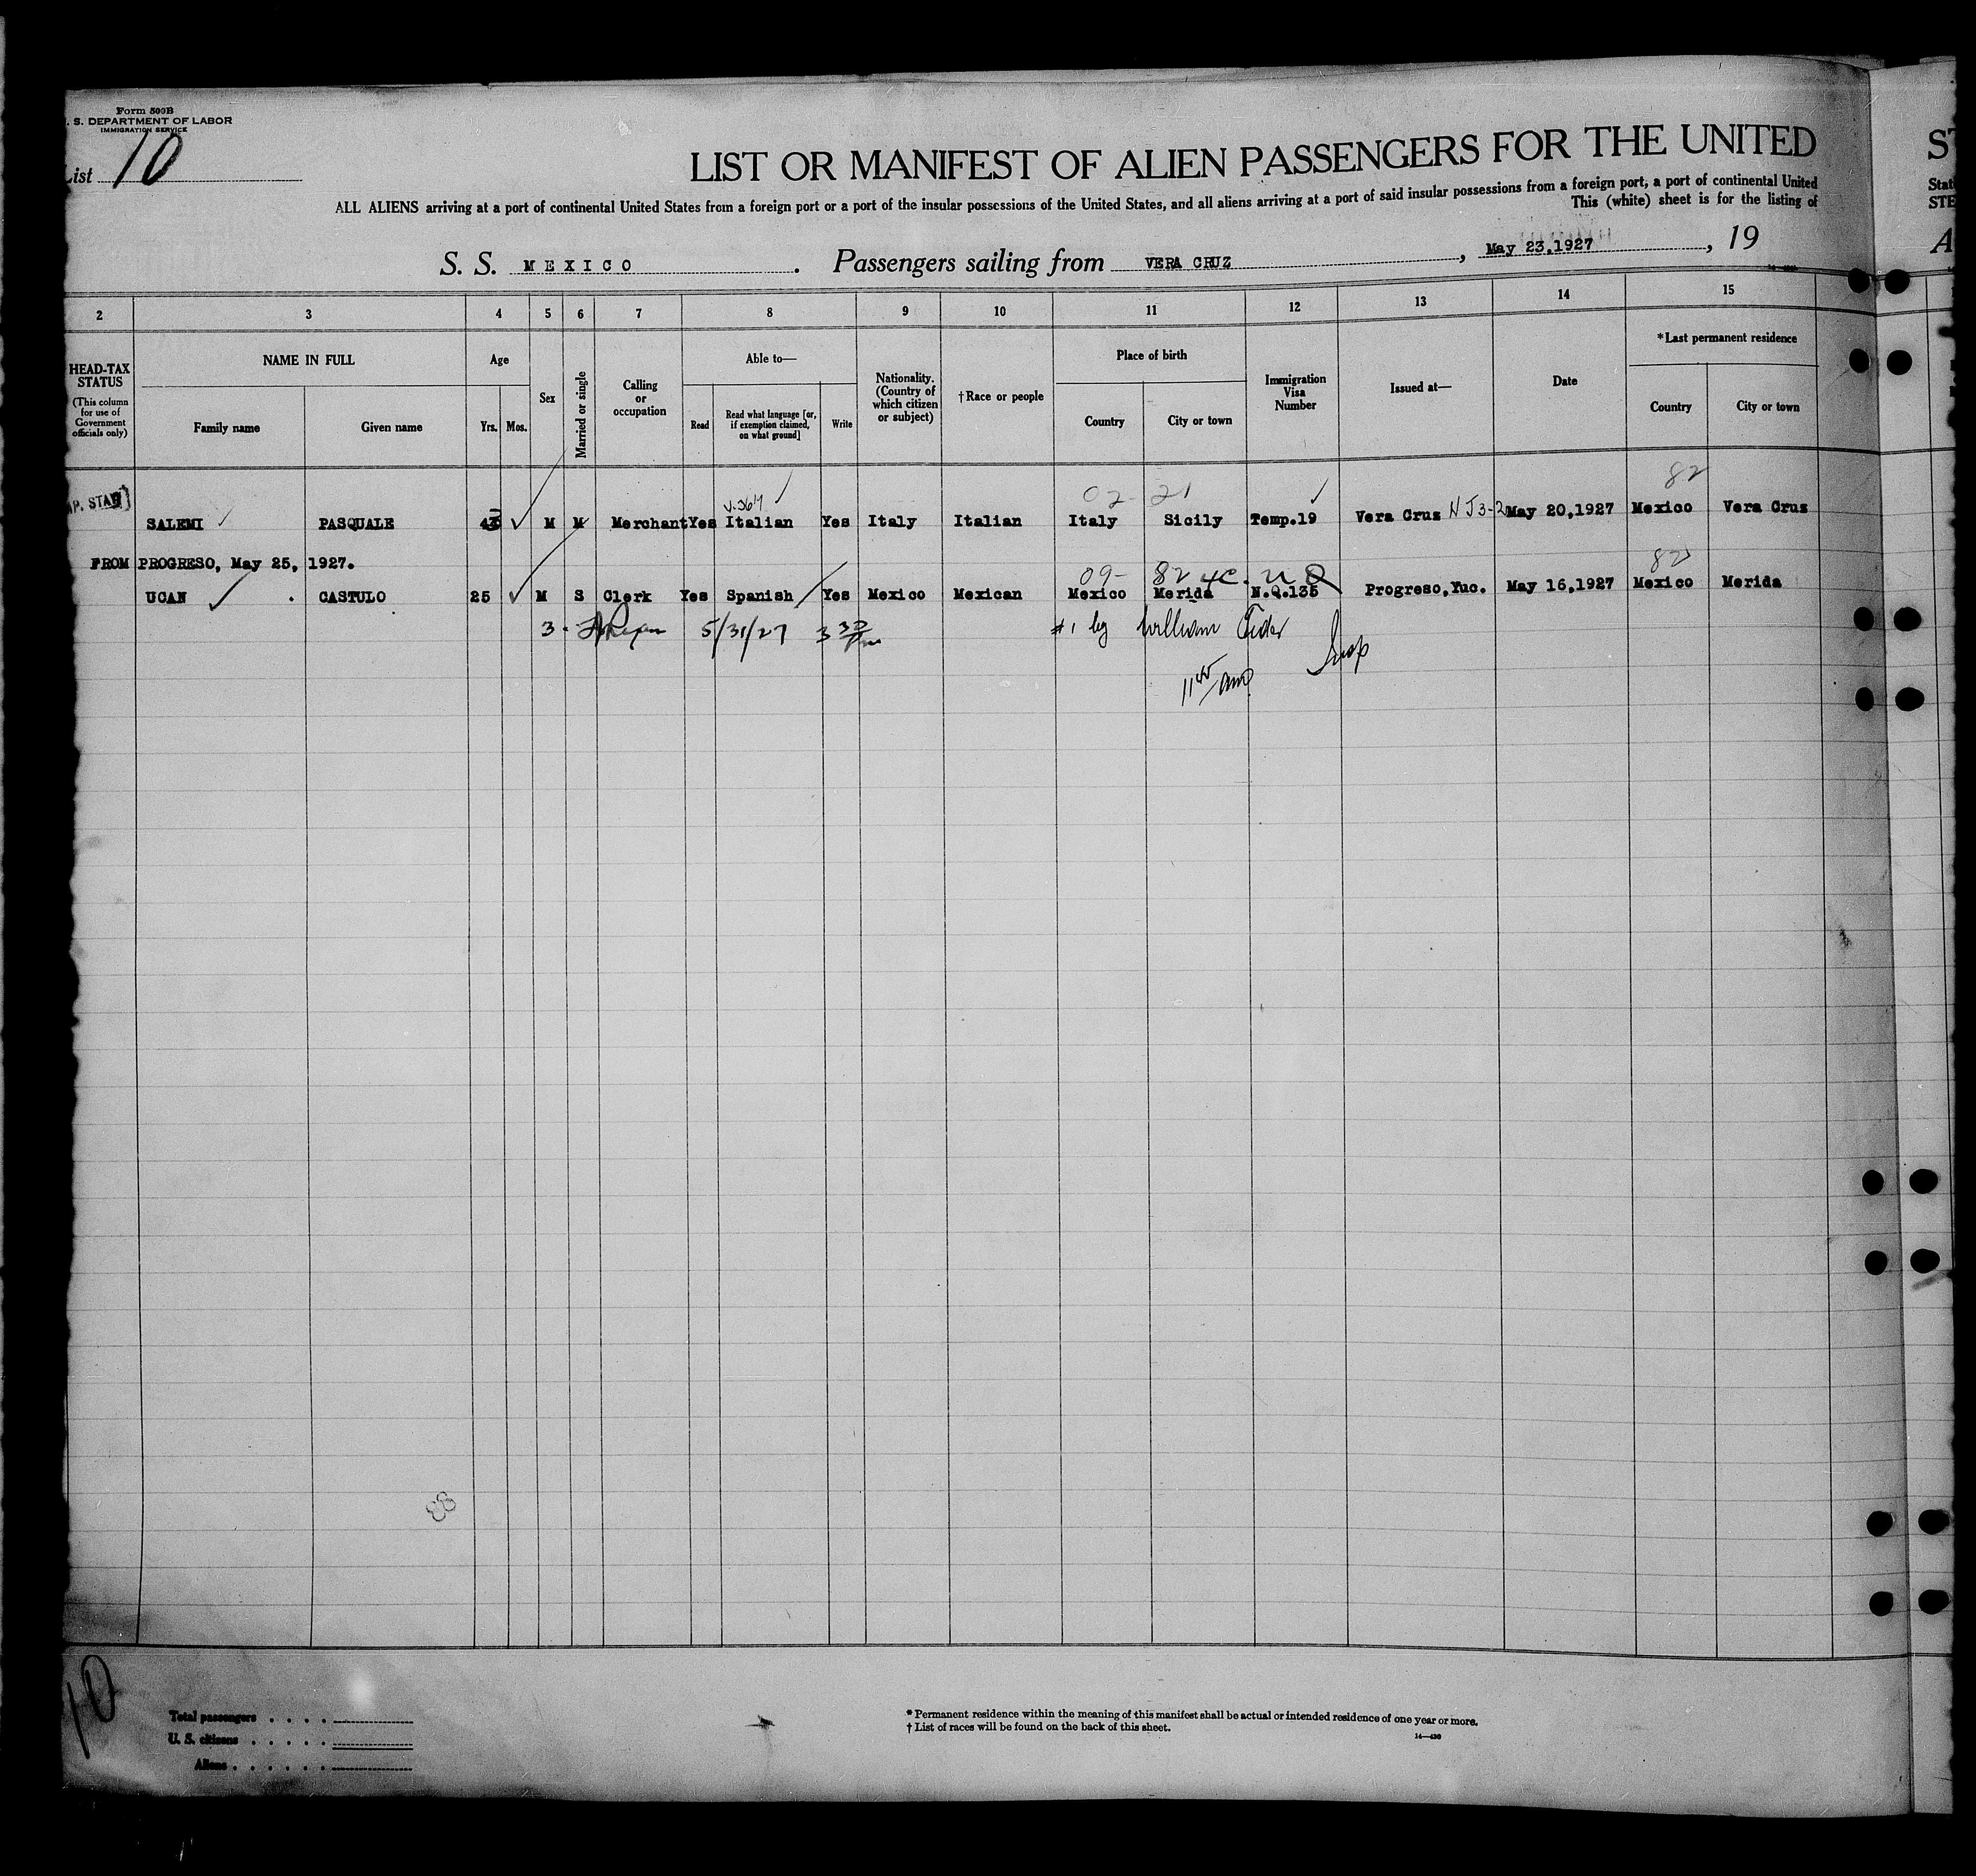 Form 500B
S. DEPARTMENT OF LABOR
IMMIGRATION SERVICE
List 10
LIST OR MANIFEST OF ALIEN PASSENGERS FOR THE UNITED
ALL ALIENS arriving at a port of continental United States from a foreign port or a port of the insular possessions of the United States, and all aliens arriving at a port of said insular possessions from a foreign port, a port of continental United
This (white) sheet is for the listing of
S. S. MEXICO. Passengers sailing from VERA CRUZ, May 23,1927, 19
2 3 4 5 6 7 8 9 10 11 12 13 14 15
HEAD-TAX STATUS
(This column for use of Government officials only)
NAME IN FULL
Family name Given name
Age
Yrs. Mos.
Sex
Married or single
Calling or occupation
Able to—
Read
Read what language [or, if exemption claimed, on what ground]
Write
Nationality. (Country of which citizen or subject)
†Race or people
Place of birth
Country City or town
Immigration Visa Number
Issued at—
Date
*Last permanent residence
Country City or town
02- 21 82
SALEMI PASQUALE 43 M M Merchant Yes Italian Yes Italy Italian Italy Sicily Temp.19 Vera Cruz May 20,1927 Mexico Vera Cruz
FROM PROGRESO, May 25, 1927.
09- 82
UCAN CASTULO 25 M S Clerk Yes Spanish Yes Mexico Mexican Mexico Merida N.Q.135 Progreso,Yuc. May 16,1927 Mexico Merida
3. 5/31/27 3 #1 by William
11 45/am Insp
88
10
Total passengers
U. S. citizens
Aliens
* Permanent residence within the meaning of this manifest shall be actual or intended residence of one year or more.
† List of races will be found on the back of this sheet.
14—430